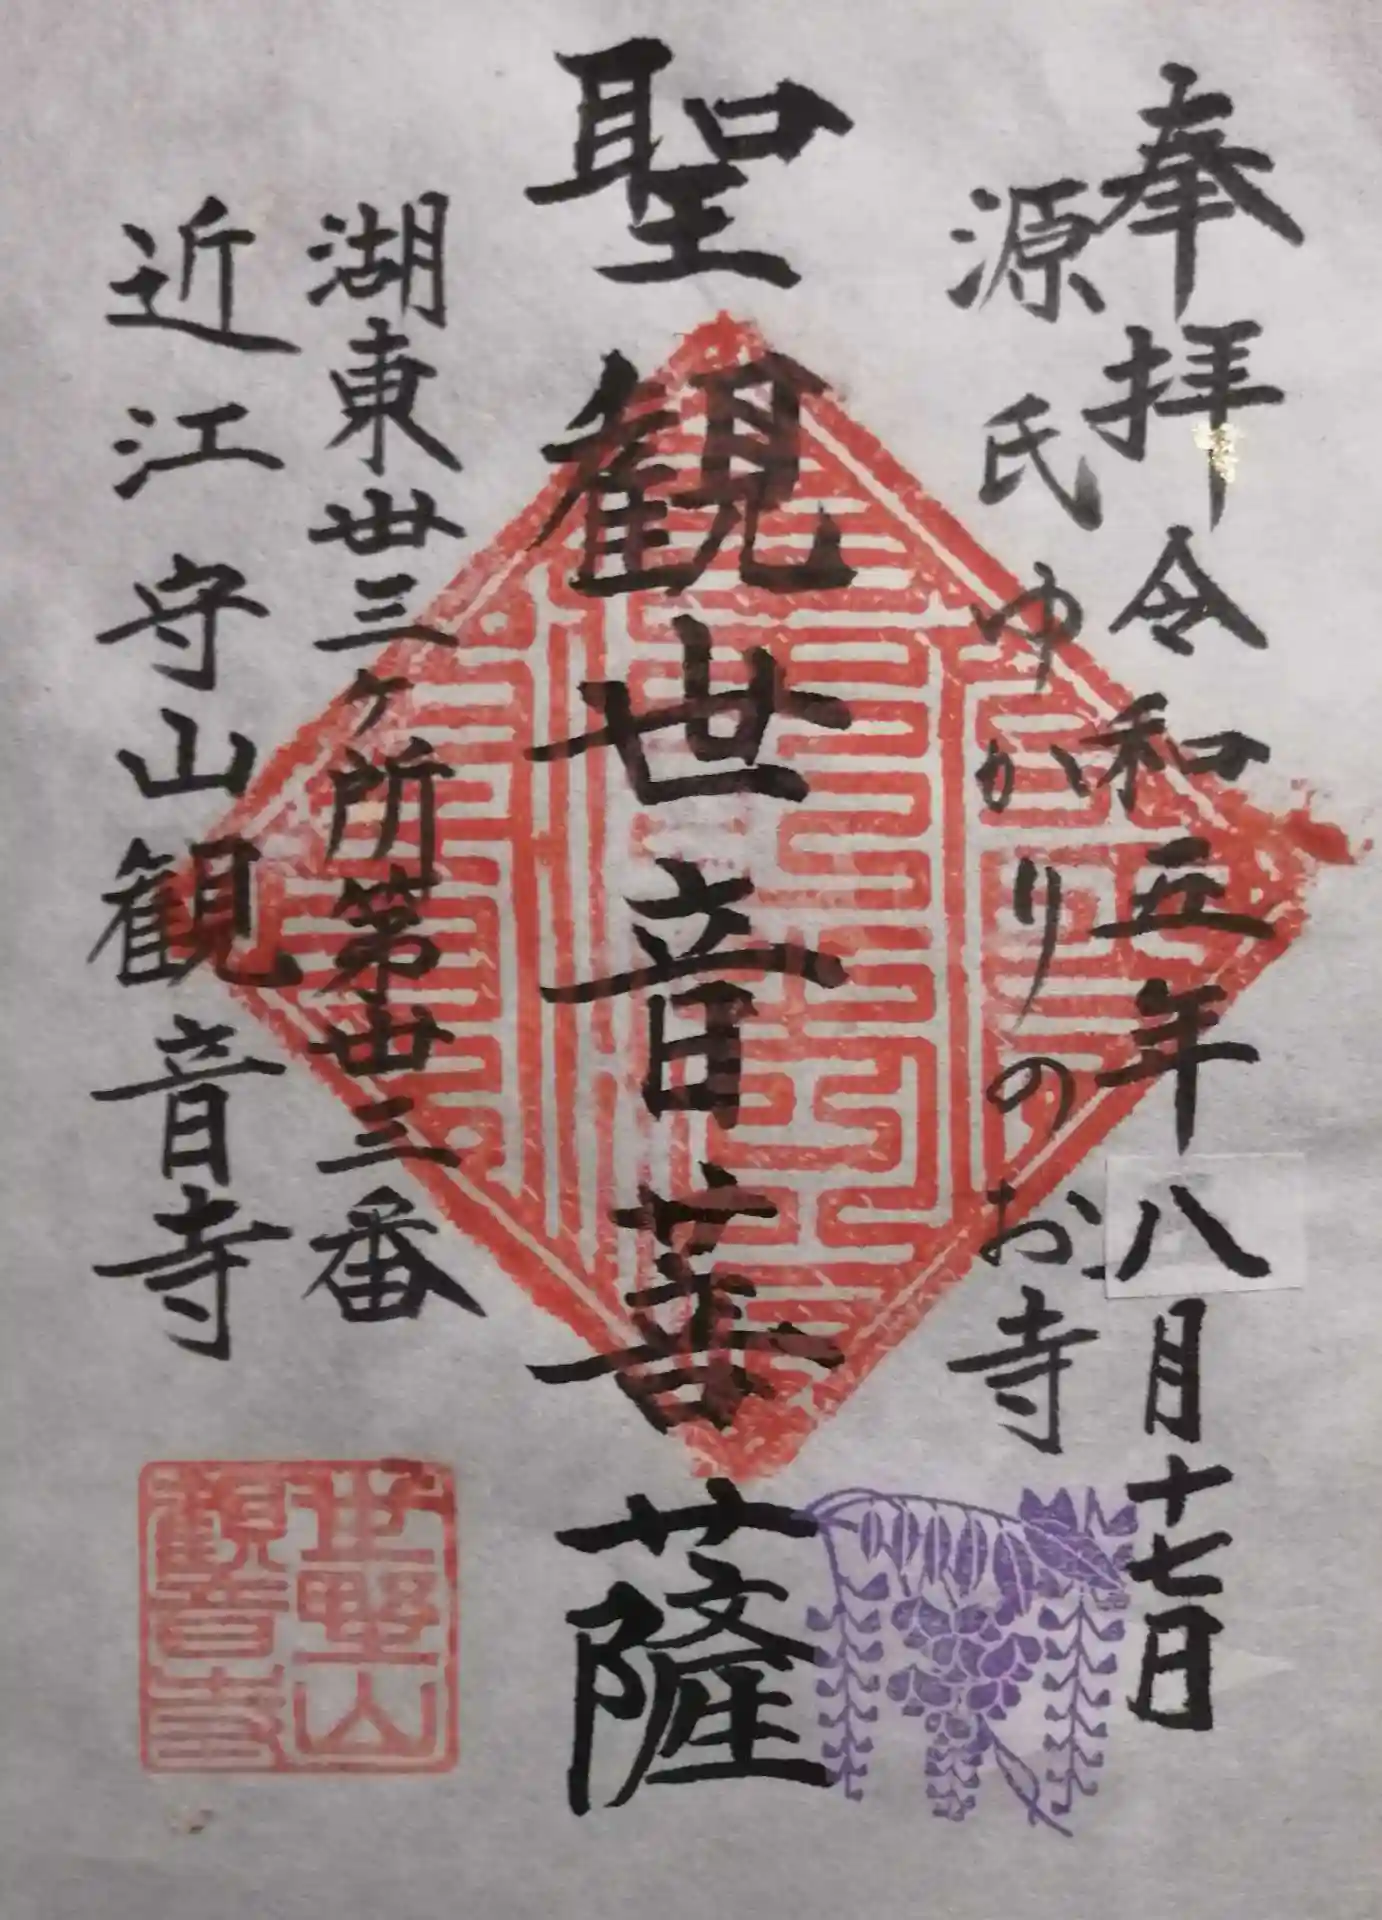 奉拝令和五年八月十七日
源氏ゆかりのお寺
聖観世音菩薩
湖東丗三ヶ所第廿三番
近江守山観音寺
観音寺